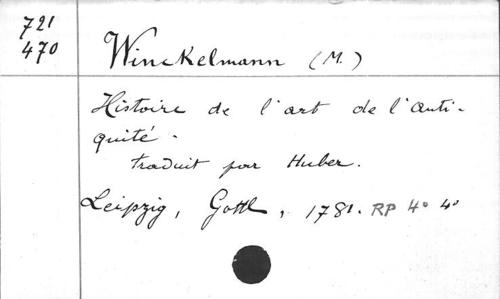 721
470
Winckelmann (M.)
Histoire de l'art de l'anti-
quité.
traduit par Huber.
Leipzig, Gottl, 1781. RP 4° 4°